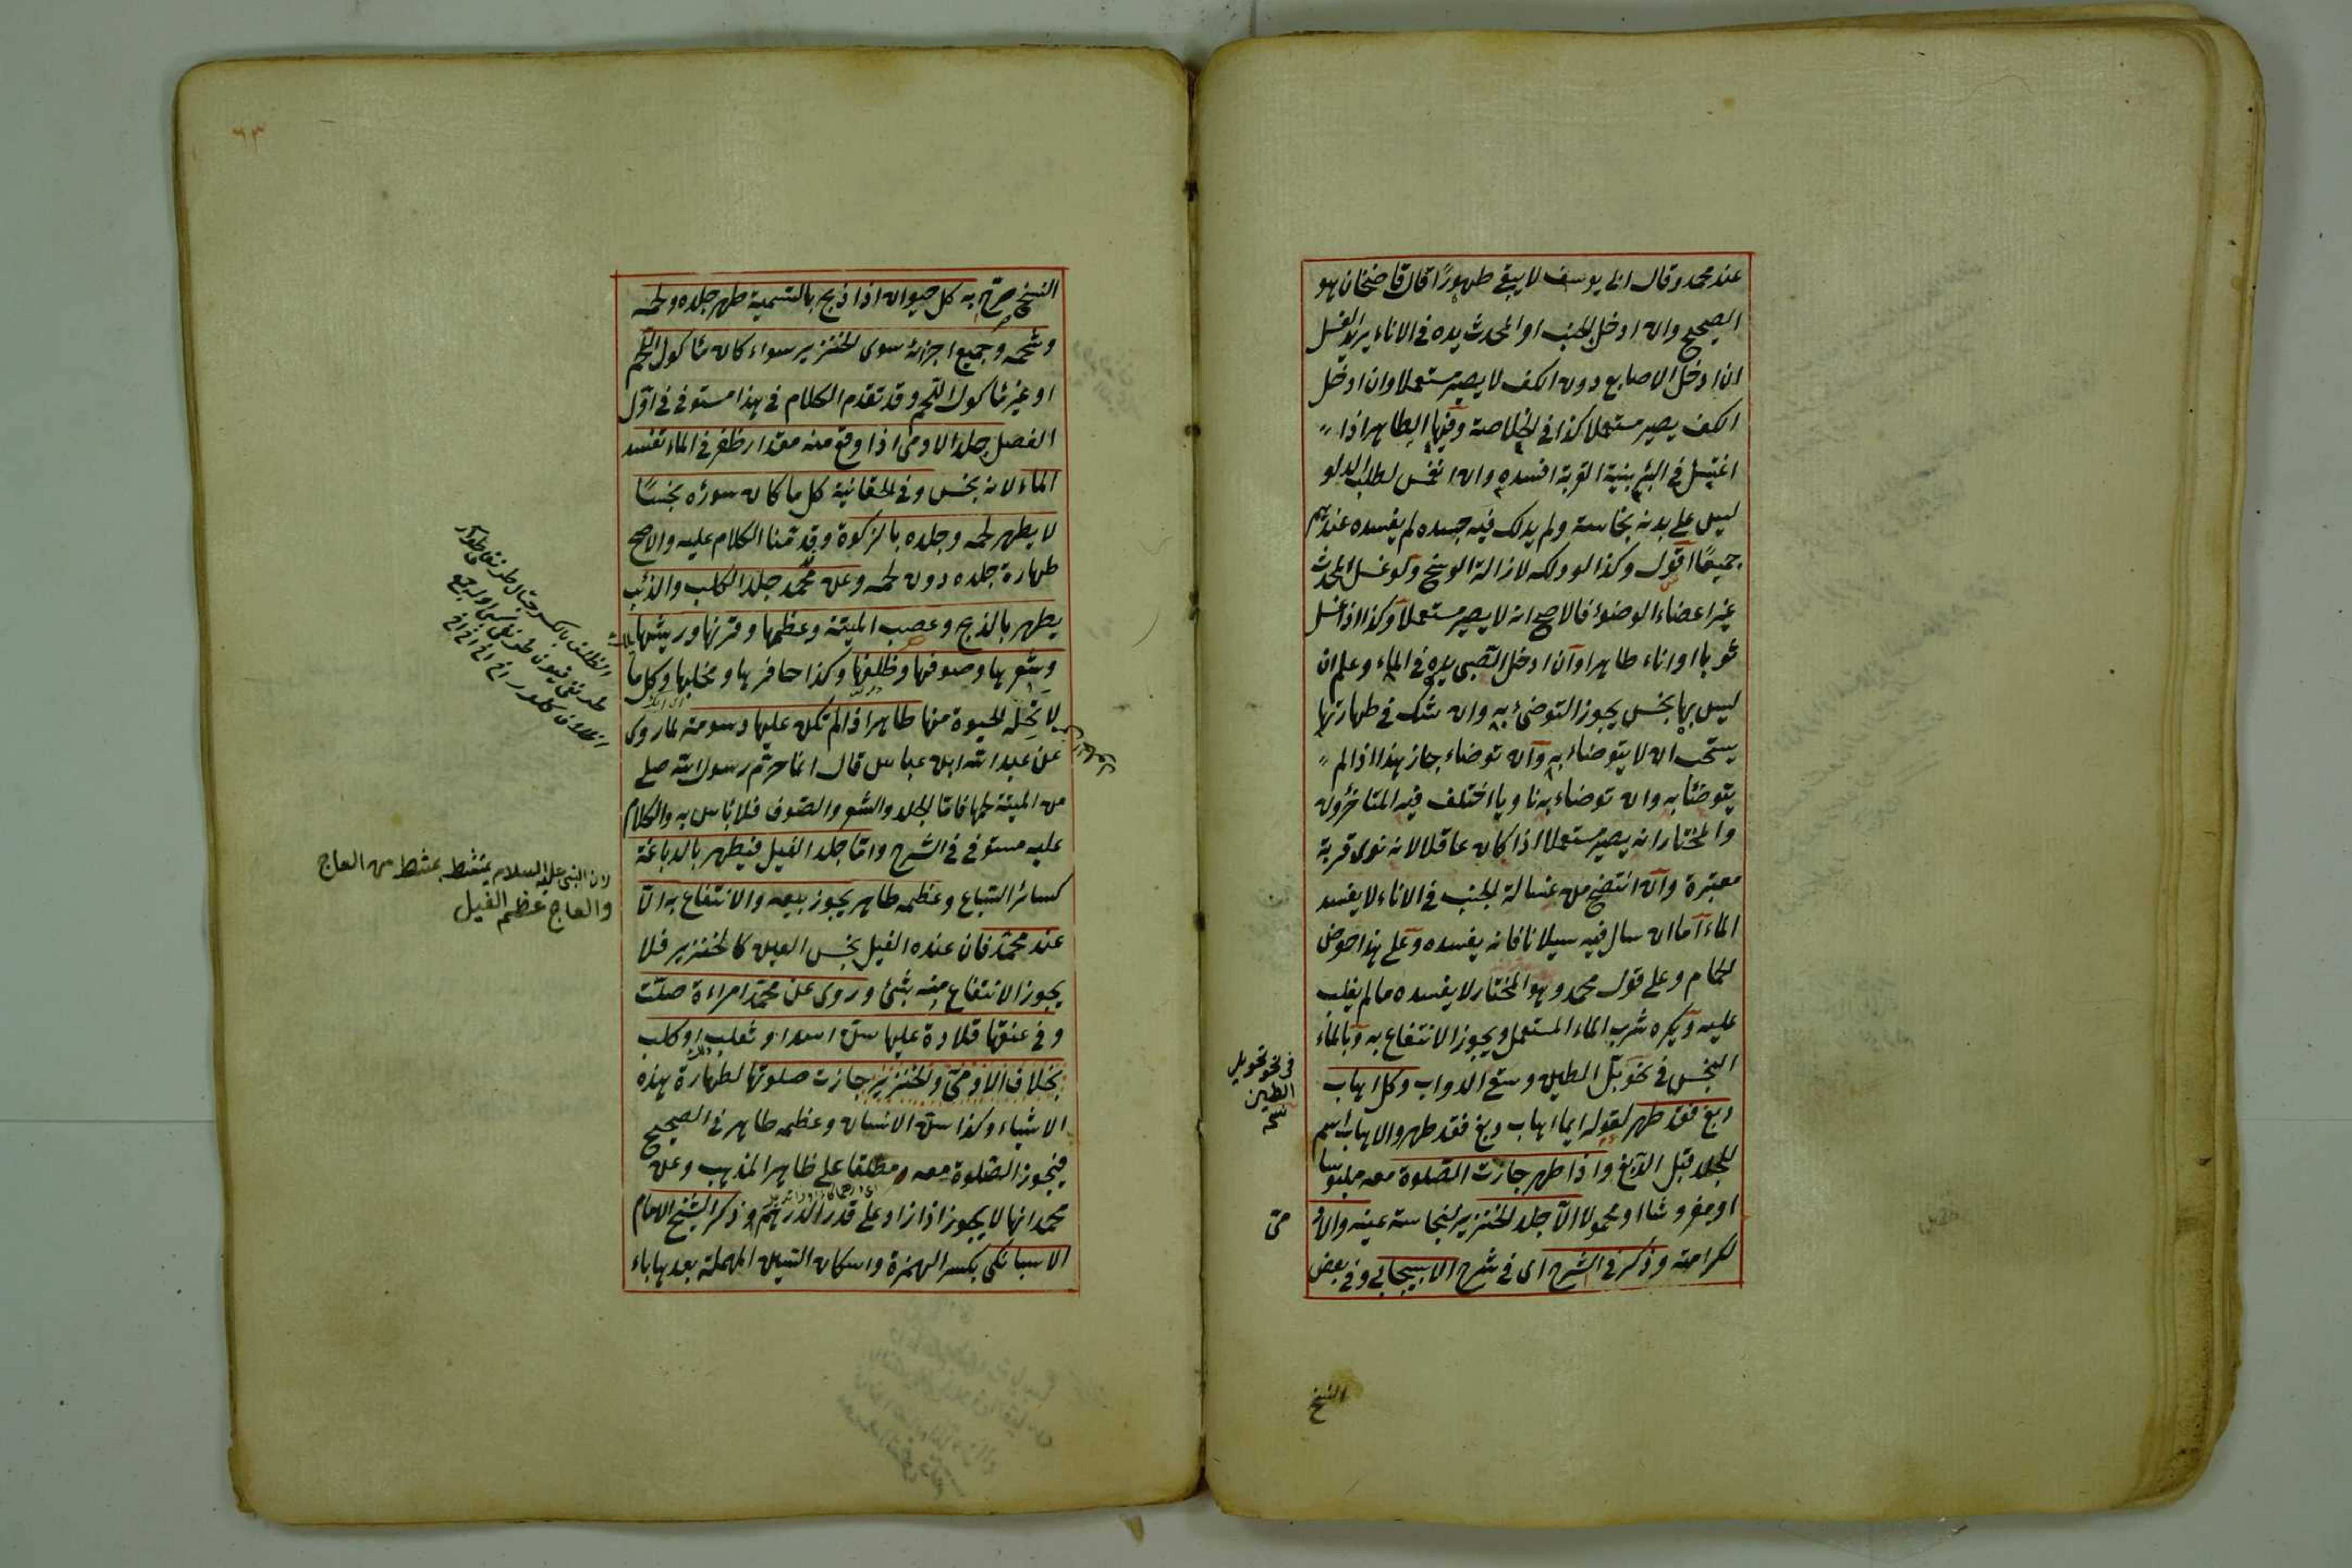 عند محمد وقال ابى يوسف لا يبقى طهورًا قال قاضخان هو
الصحيح وان ادخل الجنب او المحدث يده فى الاناء يريد الغسل
ان ادخل الاصابع دون الكف لا يصير مستعملا وان ادخل
الكف يصير مستعملا كذا فى الخلاصة وفيها الطاهر اذا
اغتسل فى البئر بنية القربة افسده وان انغمس لطلب الدلو
ليس على بدنه نجاسة ولم يدلك فيه جسده لم يفسده عندهم
جميعًا اقول وكذا لو دلكه لازالة الوسخ وكو غسل المحدث
غير اعضاء الوضوء فالاصح انه لا يصير مستعملا وكذا اذا غسل
ثوبا او اناء طاهرا وان ادخل الصبى يده فى الماء وعلم ان
ليس بها نجس يجوز التوضئ به وان شك فى طهارتها
يستحب ان لا يتوضاء به وان توضاء جاز هذا اذا لم
يتوضئا به وان توضاء به ناويا اختلف فيه المتاخرون
والمختار انه يصير مستعملا اذا كان عاقلا لانه نوى قربة
معتبرة وان انتضح من غسالة الجنب فى الاناء لا يفسد
الماء اما ان سال فيه سيلانا فانه يفسده وعلى هذا حوض
الحمام وعلى قول محمد وهو المختار لا يفسده ما لم يغلب
عليه ويكره شرب الماء المستعمل ويجوز الانتفاع به وبالماء
النجس فى نحو بلّ الطين وسقى الدواب وكل اهاب
دبغ فقد طهر لقوله ايما اهاب دبغ فقد طهر والاهاب اسم
للجلد قبل الدبغ واذا طهر جازت الصلوة معه ملبوسا
او مفروشا او محمولا الا جلد الخنزير لنجاسة عينه والاد
لكرامته وذكر فى الشرح اى فى شرح الاسبيجابى وفى بعض
فى نحو تحويل
الطين
نسخه
مى
النسخ
٦٣
النسخ صرّح به كل حيوان اذا ذبح بالتسمية طهر جلده ولحمه
وشحمه وجميع اجزائه سوى الخنزير سواء كان مأكول اللحم
او غير مأكول اللحم وقد تقدم الكلام فى هذا مستوفى فى اوّل
الفصل جلد الادمى اذا وقع منه مقدار ظفر فى الماء تفسد
الماء لانه نجس وفى الخقانية كل ما كان سوره نجسًا
لا يطهر لحمه وجلده بالزكوة وقد قدّمنا الكلام عليه والاصح
طهارة جلده دون لحمه وعن محمد جلد الكلب والذئب
يطهر بالذبح وعصب الميتة وعظمها وقرنها وريشها
وشعرها وصوفها وظلفها وكذا حافرها ومخلبها وكل ما
لا تحلّه الحيوة منها طاهر اذا لم تكن عليها دسومة لما روى
عن عبد الله ابن عباس قال انما حرّم رسول الله صلعم
من الميتة لحمها فامّا الجلد والشعر والصّوف فلا باس به والكلام
عليه مستوفى فى الشرح وامّا جلد الفيل فيطهر بالدباغة
كسائر السّباع وعظمه طاهر يجوز بيعه والانتفاع به الاّ
عند محمّد فان عنده الفيل نجس العين كالخنزير فلا
يجوز الانتفاع منه بشئ وروى عن محمّد امراءة صلّت
وفى عنقها قلادة عليها سنّ اسد او ثعلب او كلب
بخلاف الادمى والخنزير جازت صلوتها لطهارة هذه
الاشياء وكذا سنّ الانسان وعظمه طاهر فى الصحيح
فيجوز الصّلوة معه مطلقا على ظاهر المذهب وعن
محمد انها لا يجوز اذا زاد على قدر الدرهم وذكر الشيخ الامام
الاسبانكى بكسر الهمزة واسكان السّين المهملة بعدها باء
الظلف بالكسر
لان النبى عليه السلام يمتشط بمشط من العاج
والعاج عظم الفيل